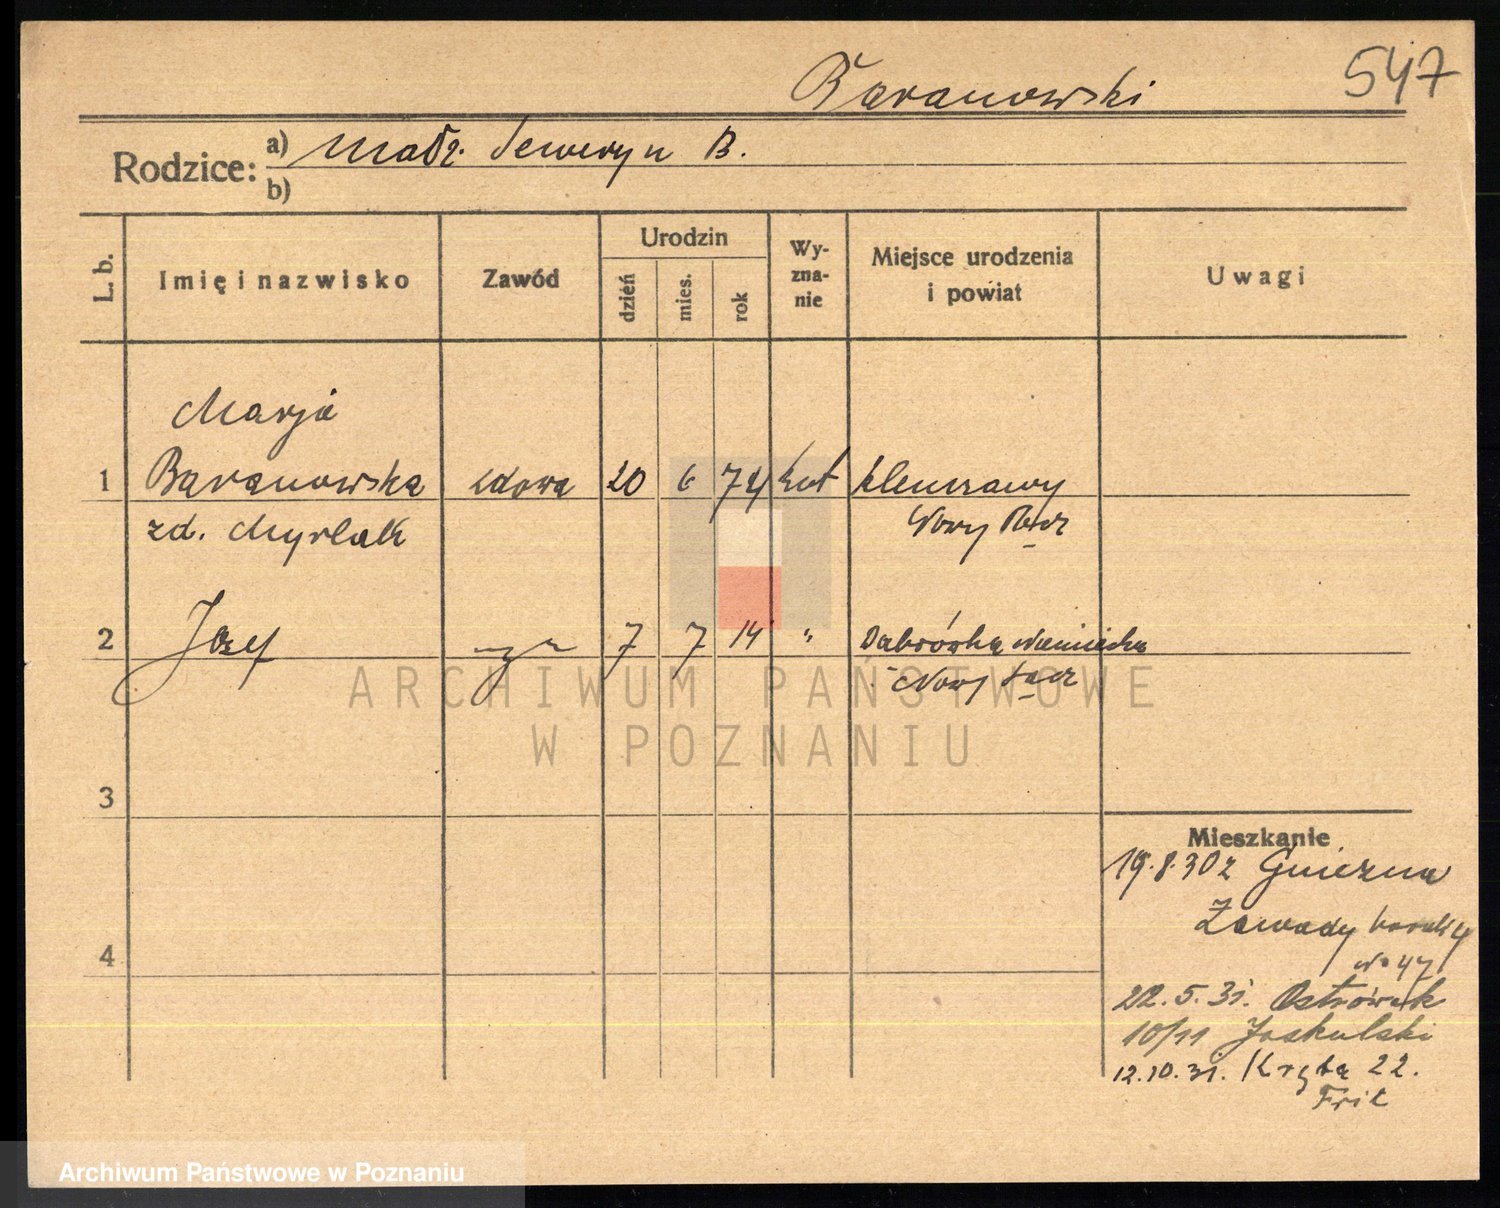 Baranowski
547
Rodzice:
a) Małż. Seweryn B.
b)
L. b.
Imię i nazwisko
Zawód
Urodzin
dzień
mies.
rok
Wy-
zna-
nie
Miejsce urodzenia
i powiat
Uwagi
Marja
1 Baranowska wdowa 20 6 74 kat
zd. Myrlak Nowy Sącz
2 Józef 7 7 14 " Dąbrówka Niemiecka
Nowy Sącz
3
4
Mieszkanie
19.8.30 z Gniezna
Zawady barak 4
No 47
22.5.31. Ostrówek
10/11 Jaskulski
12.10.31. Kręta 22.
ARCHIWUM PAŃSTWOWE
W POZNANIU
Archiwum Państwowe w Poznaniu